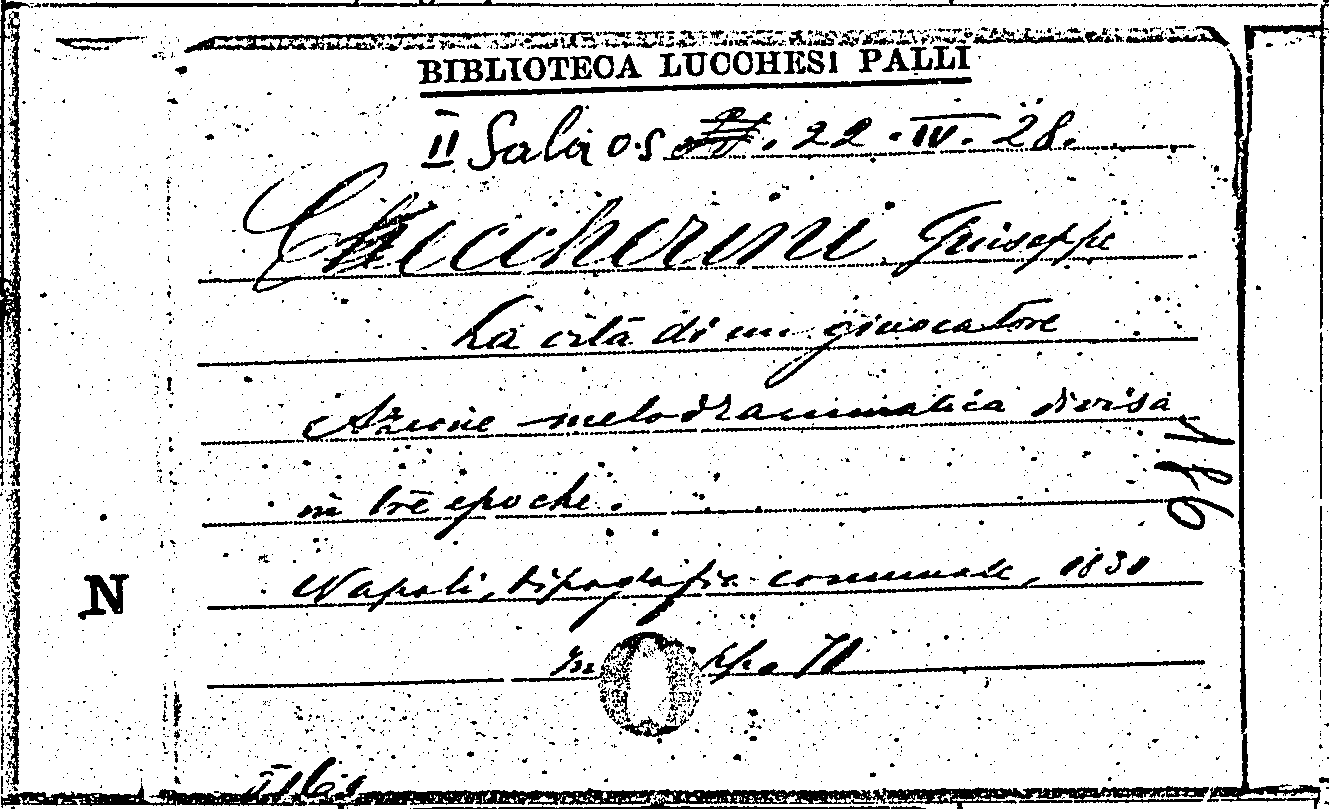 BIBLIOTECA LUCCHESI PALLI
II Sala o.s . 22 . IV . 28.
Checcherini Giuseppe
La vita di un giuocatore
Azione melodrammatica divisa
in tre epoche.
Napoli, tipografia comunale, 1831
N
in pp. 70